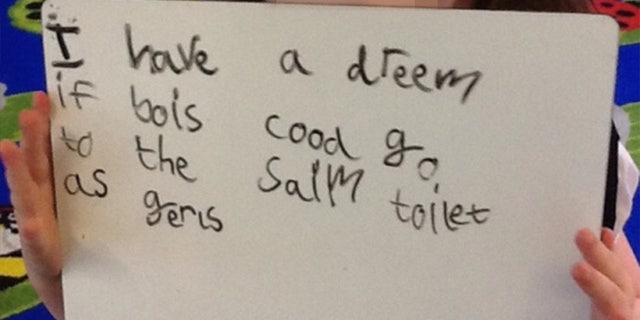 I have a dreem
if bois cood go
to the salm toilet
as gerls